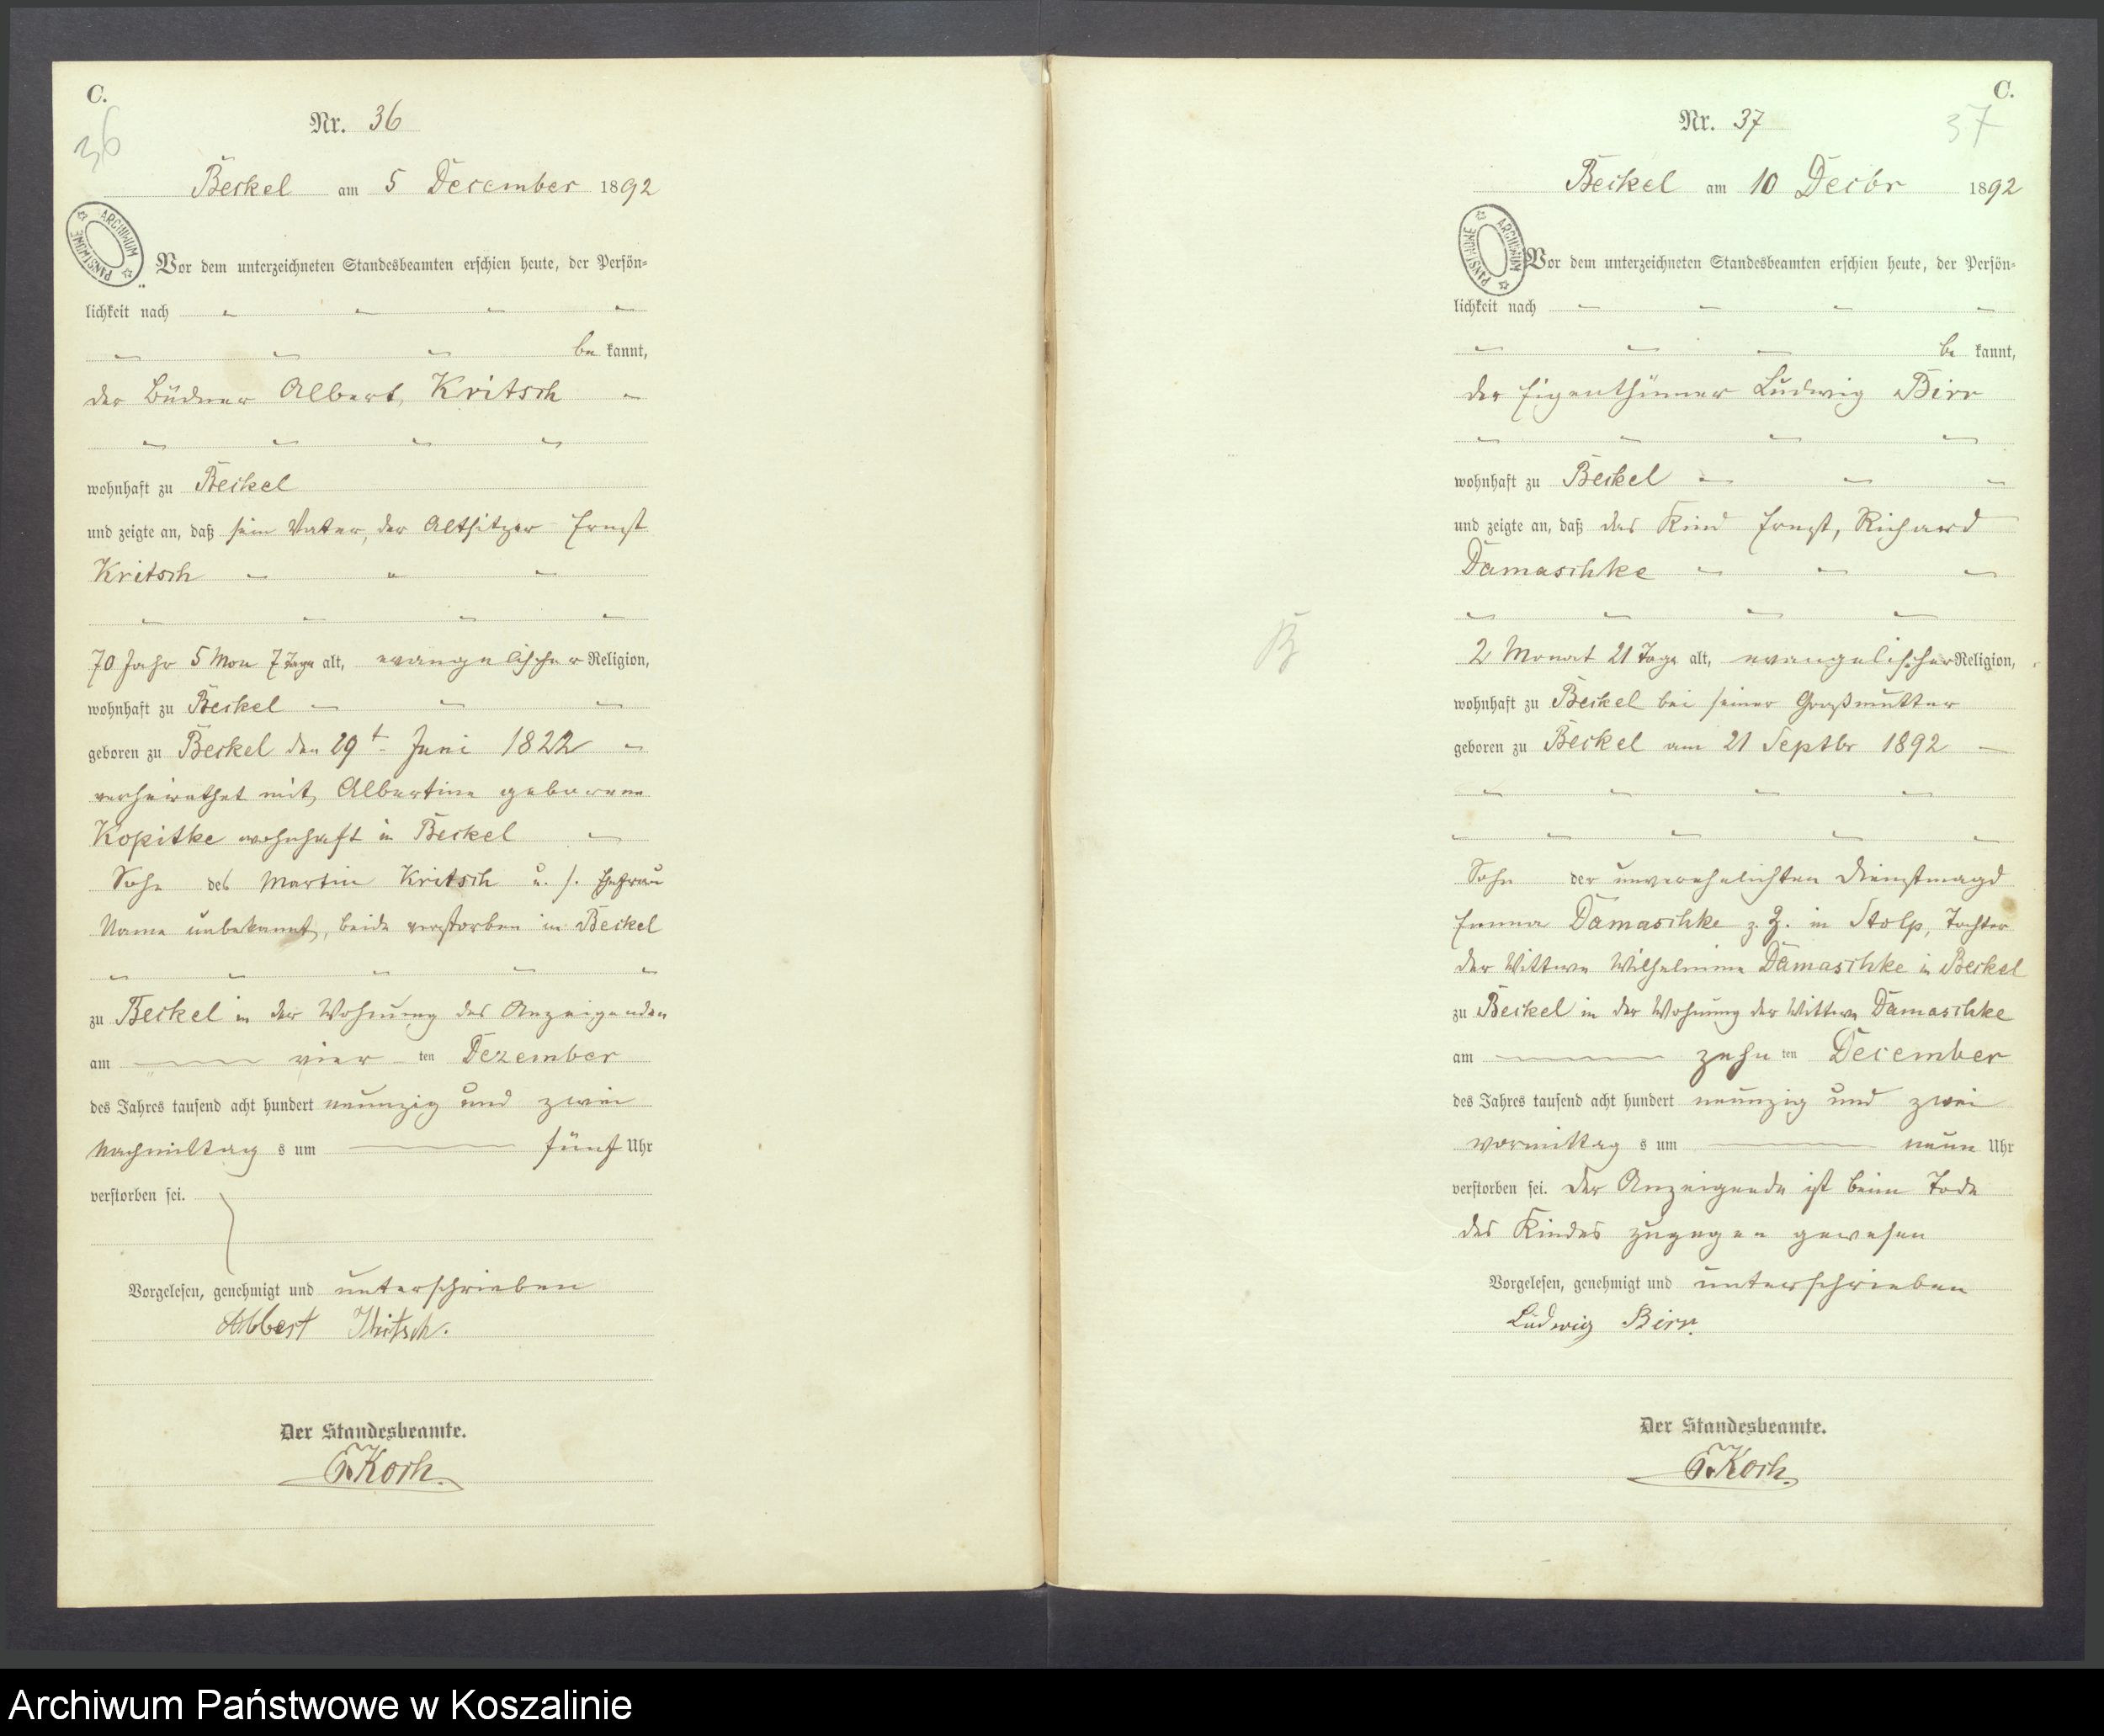 C.
36
Nr. 36
Beckel am 5 December 1892
ARCHIWUM PAŃSTWOWE
Vor dem unterzeichneten Standesbeamten erschien heute, der Persön-
lichkeit nach
be kannt,
der Büdner Albert Kritsch
wohnhaft zu Beckel
und zeigte an, daß sein Vater, der Altsitzer Ernst
Kritsch
70 Jahr 5 Mon 7 Tage alt, evangelischer Religion,
wohnhaft zu Beckel
geboren zu Beckel den 29t Juni 1822
verheirathet mit Albertine geborene
Kopitke wohnhaft in Beckel
Sohn des Martin Kritsch u. s. Ehefrau
Name unbekannt, beide verstorben in Beckel
zu Beckel in der Wohnung des Anzeigenden
am vier ten Dezember
des Jahres tausend acht hundert neunzig und zwei
Nachmittag s um fünf Uhr
verstorben sei.
Vorgelesen, genehmigt und unterschrieben
Albert Kritsch.
Der Standesbeamte.
Koch.
C.
37
Nr. 37
Beckel am 10 Decbr 1892
ARCHIWUM PAŃSTWOWE
Vor dem unterzeichneten Standesbeamten erschien heute, der Persön-
lichkeit nach
be kannt,
der Eigenthümer Ludwig Birr
wohnhaft zu Beckel
und zeigte an, daß das Kind Ernst, Richard
Damaschke
2 Monat 21 Tage alt, evangelischer Religion,
wohnhaft zu Beckel bei seiner Großmutter
geboren zu Beckel am 21 Septbr 1892
Sohn der unverehelichten Dienstmagd
Emma Damaschke z. Z. in Stolp, Tochter
der Wittwe Wilhelmine Damaschke in Beckel
zu Beckel in der Wohnung der Wittwe Damaschke
am zehn ten December
des Jahres tausend acht hundert neunzig und zwei
vormittag s um neun Uhr
verstorben sei. Der Anzeigende ist beim Tode
des Kindes zugegen gewesen
Vorgelesen, genehmigt und unterschrieben
Ludwig Birr.
Der Standesbeamte.
Koch.
Archiwum Państwowe w Koszalinie